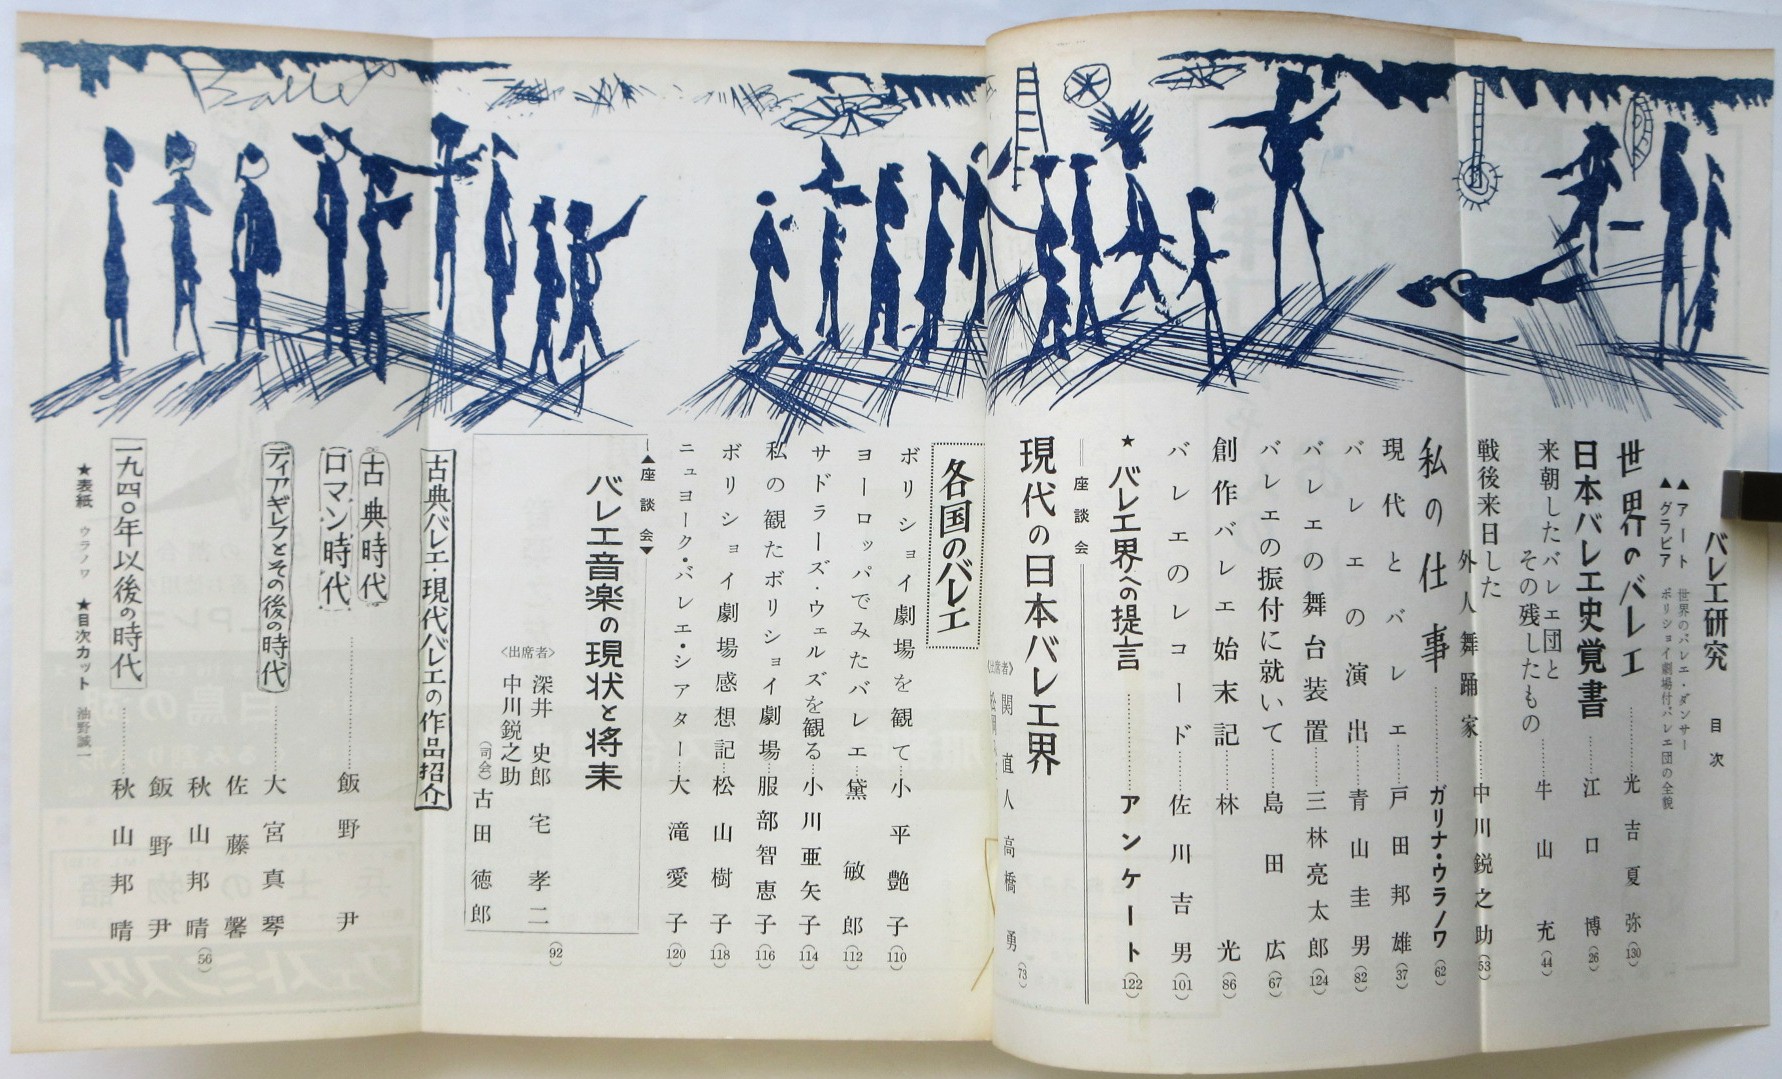 Ballet
バレエ研究 目次
▲アート 世界のバレエ・ダンサー
▲グラビア ボリショイ劇場付バレエ団の全貌
世界のバレエ……光吉夏弥(130)
日本バレエ史覚書……江口博(26)
来朝したバレエ団と
その残したもの……牛山充(44)
戦後来日した
外人舞踊家……中川鋭之助(53)
私の仕事……ガリナ・ウラノワ(62)
現代とバレエ……戸田邦雄(37)
バレエの演出……青山圭男(82)
バレエの舞台装置……三林亮太郎(124)
バレエの振付に就いて……島田広(67)
創作バレエ始末記……林光(86)
バレエのレコード……佐川吉男(101)
★バレエ界への提言……アンケート(122)
座談会
現代の日本バレエ界
〈出席者〉
関直人 高橋勇(73)
各国のバレエ
ボリショイ劇場を観て…小平艶子(110)
ヨーロッパでみたバレエ…黛敏郎(112)
サドラーズ・ウェルズを観る…小川亜矢子(114)
私の観たボリショイ劇場…服部智恵子(116)
ボリショイ劇場感想記…松山樹子(118)
ニューヨーク・バレエ・シアター…大滝愛子(120)
▲座談会▼
バレエ音楽の現状と将来
〈出席者〉
深井史郎 宅孝二
中川鋭之助
(司会)古田徳郎
(92)
古典バレエ・現代バレエの作品招介
古典時代
ロマン時代……飯野尹
ディアギレフとその後の時代……大宮真琴
佐藤馨
秋山邦晴(56)
飯野尹
一九四〇年以後の時代……秋山邦晴
★表紙 ウラノワ ★目次カット 油野誠一